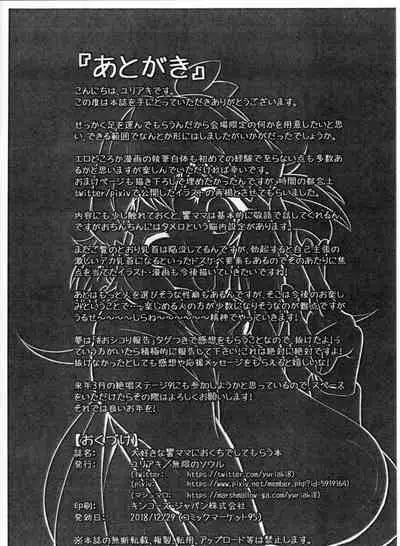 『あとがき』
こんにちは、ユリアキです。
この度は本誌を手にとっていただきありがとうございます。
せっかく足を運んでもらうんだから会場限定の何かを用意したいと思
い、できる範囲でなんとか形にはしましたがいかがだったでしょうか。
エロどころか漫画の執筆自体も初めての経験で至らない点も多数あ
るかと思いますが楽しんでいただければ幸いです。
おまけページも描き下ろしで埋めたかったんですが、時間の都合上
twitter/pixivで公開したイラストの再掲とさせてもらいました。
内容にも少し触れておくと、響ママは基本的に敬語で話してくれるん
ですがおちんちんにはタメ口という脳内設定があります。
まだご覧のとおり乳首は陥没してるんですが、勃起すると自己主張の
激しいデカ乳首になるといったドスケベ要素もあるのでそのあたりに焦
点を当てたイラスト・漫画も今後描いていきたいですね！
あとはもっと人を選びそうな性癖もあるんですが、そこは今後のお楽し
みということで…って楽しめる人の方が少数になりそうなのが難点ですが
うるせ～～～～しらね～～～～～～精神でやっていきます！
夢は「#おシコり報告」タグつきで感想をもらうことなので、抜けたよっ
ていう方がいたら積極的に報告して下さい！これは絶対に絶対ですよ！
抜けなかったとしても感想や応援メッセージをもらえると嬉しいな！
来年3月の絶唱ステージ9にも参加しようかと思っているので、スペース
をいただけたらその際はよろしくお願いします！
それでは良いお年を！
【おくづけ】
誌名： 大好きな響ママにおくちでしてもらう本
発行： ユリアキ／無限のソウル
(twitter: https://twitter.com/yuriaki8)
(pixiv: https://www.pixiv.net/member.php?id=5919164)
(マシュマロ: https://marshmallow-qa.com/yuriaki8)
印刷： キンコーズ・ジャパン株式会社
発効日： 2018/12/29（コミックマーケット95）
※本誌の無断転載、複製、転用、アップロード等は禁止します。